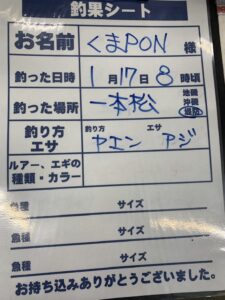 釣果シート
お名前 くまPON 様
釣った日時 1月17日8時頃
釣った場所 一本松 地磯 沖磯 堤防
釣り方 エサ 釣り方 ヤエン エサ アジ
ルアー、エギの種類・カラー
魚種 サイズ
魚種 サイズ
魚種 サイズ
お持ち込みありがとうございました。